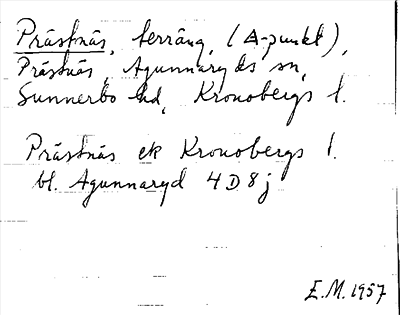 Prästnäs, terräng, (△-punkt),
Prästnäs, Agunnaryds sn,
Sunnerbo hd, Kronobergs l.
Prästnäs ek Kronobergs l.
bl. Agunnaryd 4D8j
E.M. 1957